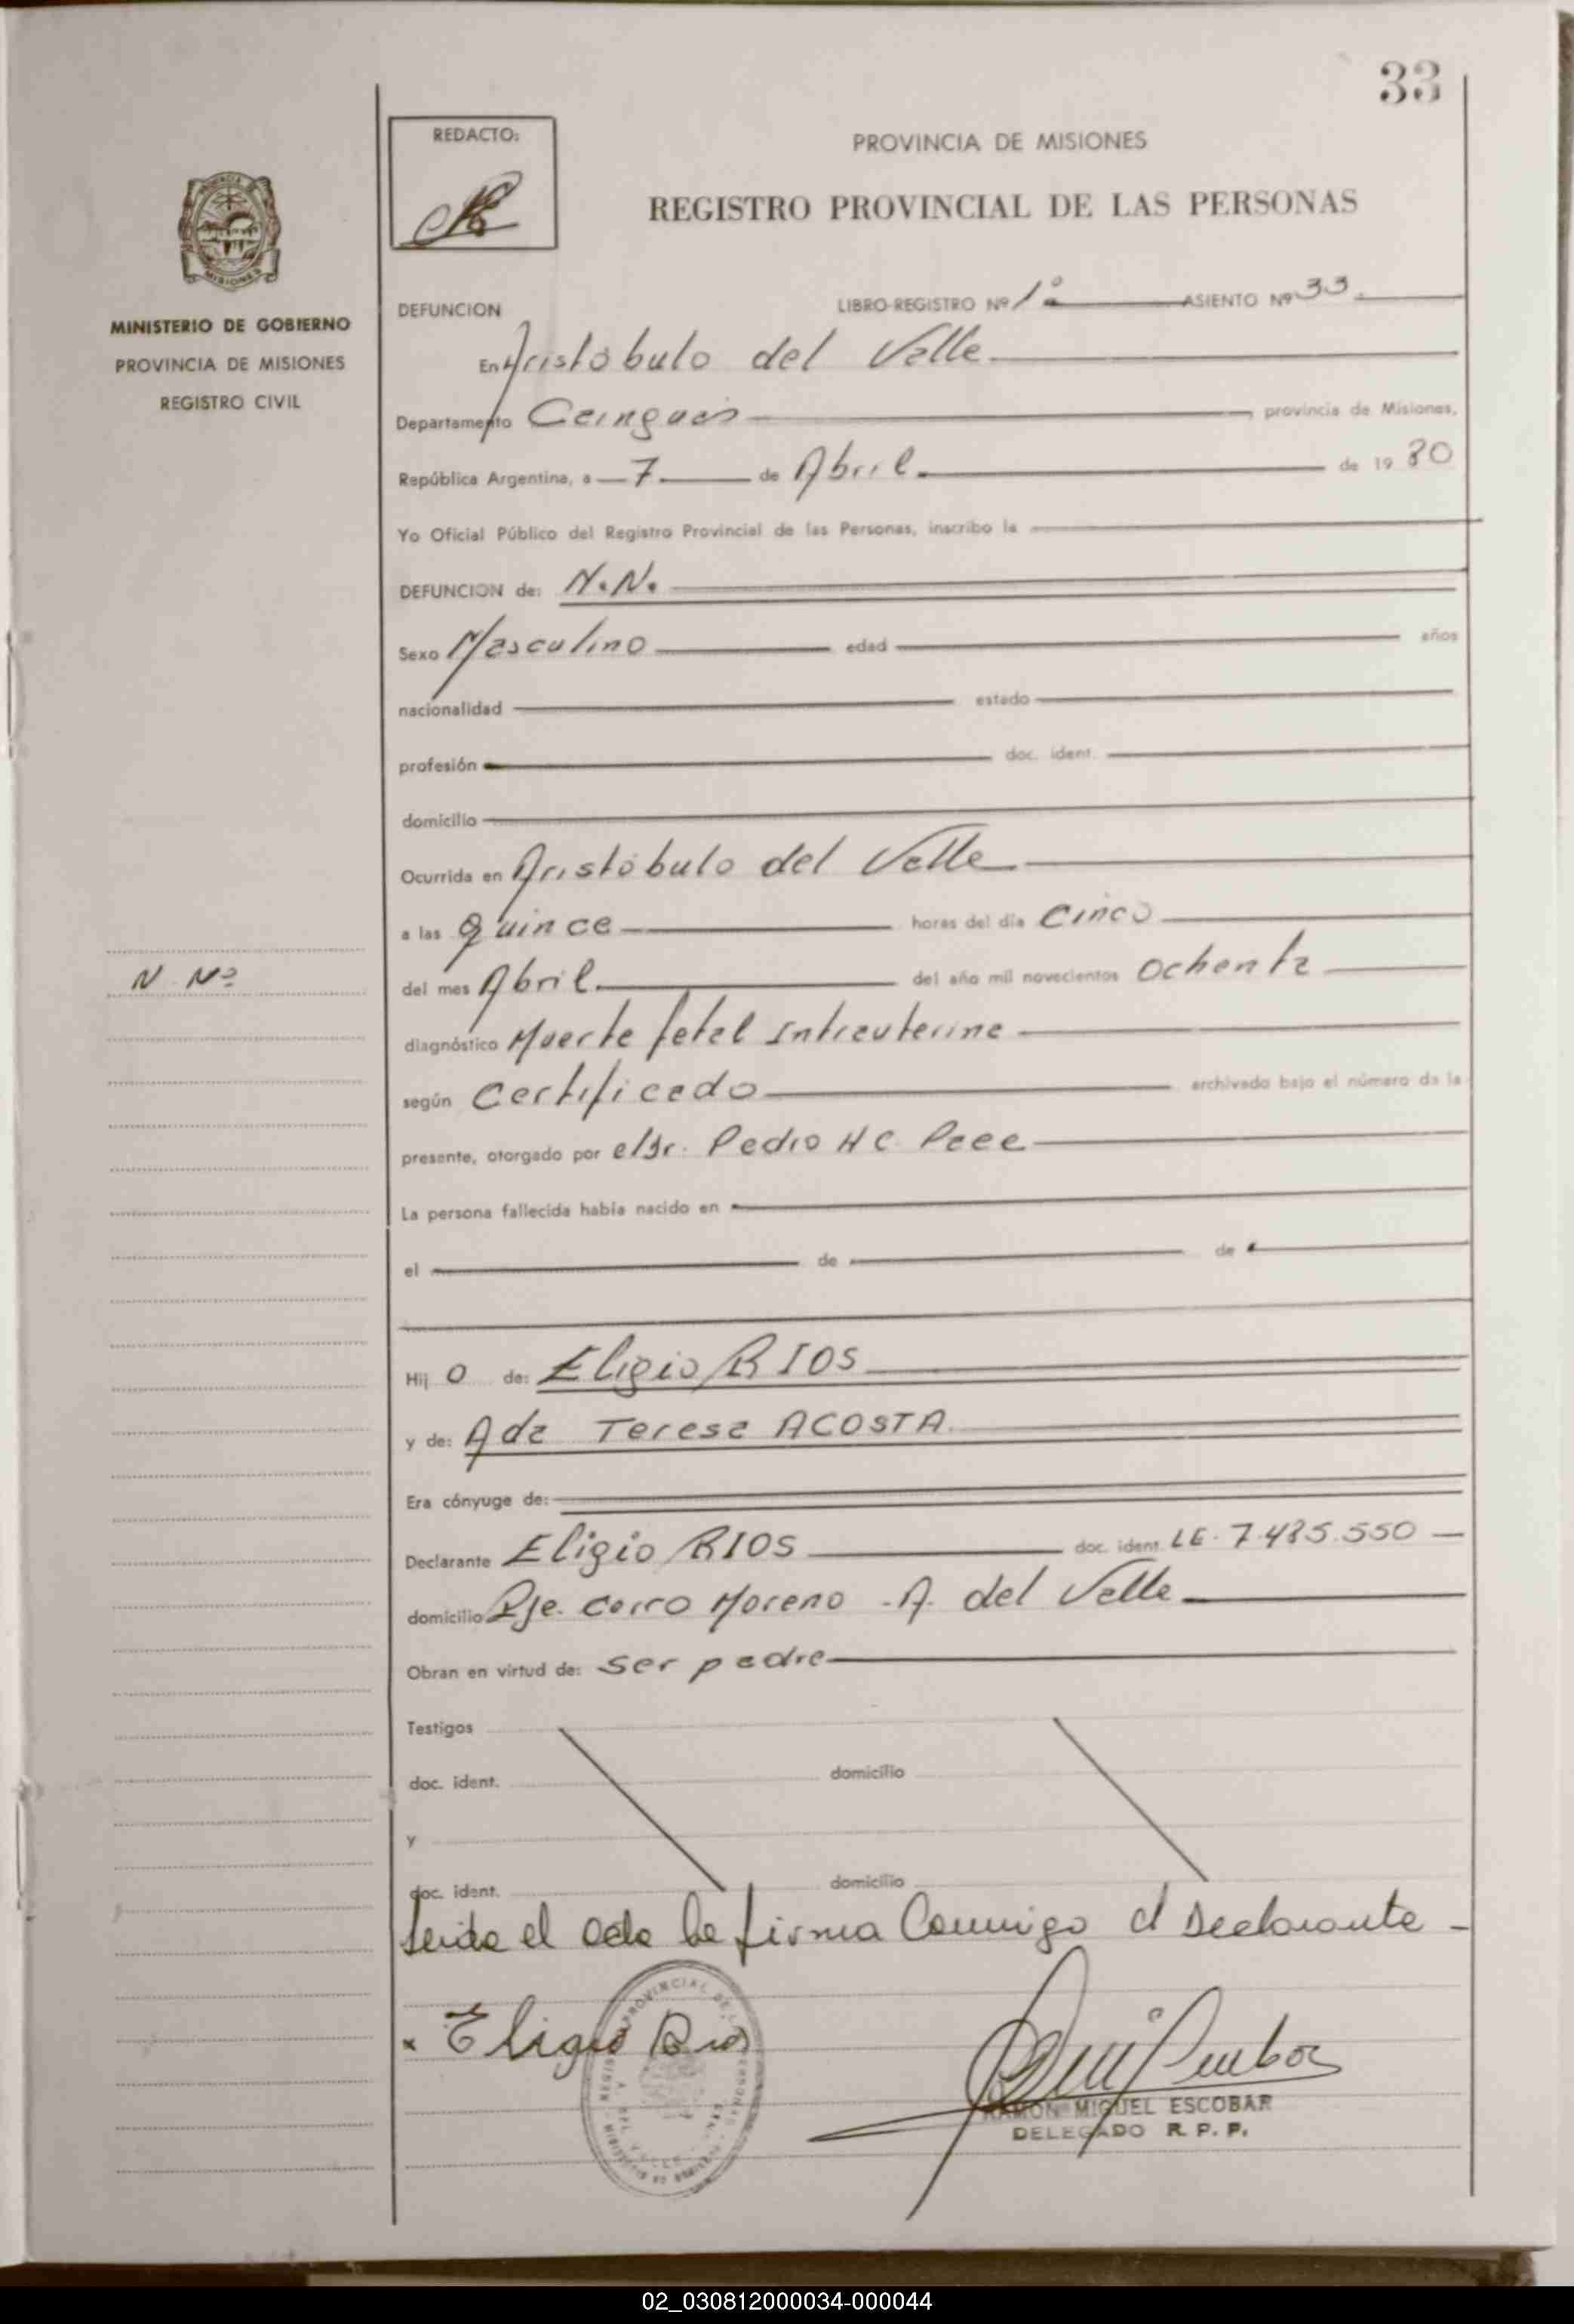 33
REDACTO:
PROVINCIA DE MISIONES
REGISTRO PROVINCIAL DE LAS PERSONAS
MISIONES
MINISTERIO DE GOBIERNO
PROVINCIA DE MISIONES
REGISTRO CIVIL
DEFUNCION LIBRO-REGISTRO Nº 1º ASIENTO Nº 33
En Aristóbulo del Valle
Departamento Cainguás provincia de Misiones,
República Argentina, a 7 de Abril de 19 80
Yo Oficial Público del Registro Provincial de las Personas, inscribo la
DEFUNCION de: N.N.
Sexo Masculino edad años
nacionalidad estado
profesión doc. ident.
domicilio
Ocurrida en Aristóbulo del Valle
a las quince horas del día Cinco
N. Nº
del mes Abril del año mil novecientos Ochenta
diagnóstico Muerte fetal Intrauterina
según Certificado archivado bajo el número de la
presente, otorgado por el Dr. Pedro H C
La persona fallecida había nacido en
el de de
Hij o de: Eligio RIOS
y de: Ada Teresa ACOSTA
Era cónyuge de:
Declarante Eligio RIOS doc. ident. LE. 7.485.550
domicilio Pje. Cerro Moreno - A. del Valle
Obran en virtud de: Ser padre
Testigos
doc. ident. domicilio
y
doc. ident. domicilio
Leida el acta la firma Conmigo el Declarante -
x Eligio Rios
RAMON MIGUEL ESCOBAR
DELEGADO R. P. P.
02_030812000034-000044